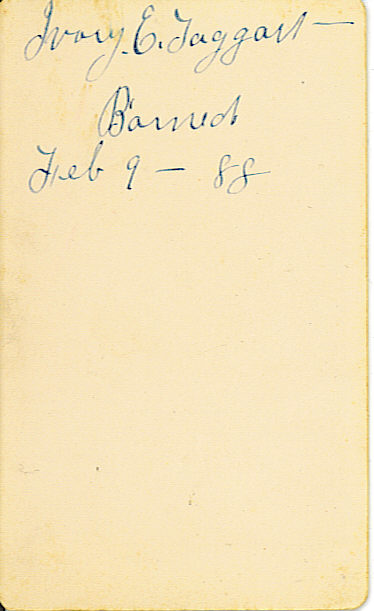 Ivory E. Taggart —
Borned
Feb 9 — 88